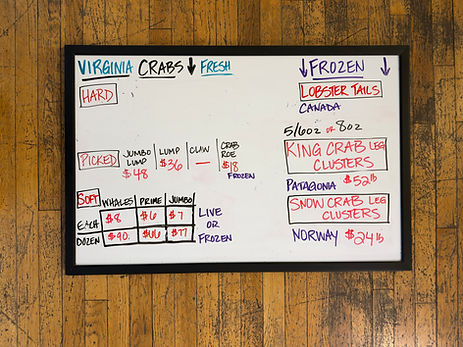 VIRGINIA CRABS ↓ FRESH
HARD
PICKED
JUMBO LUMP
$48
LUMP
$36
CLAW
—
CRAB ROE
$18
FROZEN
SOFT
WHALES PRIME JUMBO
EACH $8 $6 $7
DOZEN $90. $66 $77
LIVE
OR
FROZEN
↓ FROZEN ↓
LOBSTER TAILS
CANADA
5/6oz or 8oz
KING CRAB LEG
CLUSTERS
PATAGONIA $52lb
SNOW CRAB LEG
CLUSTERS
NORWAY $24lb